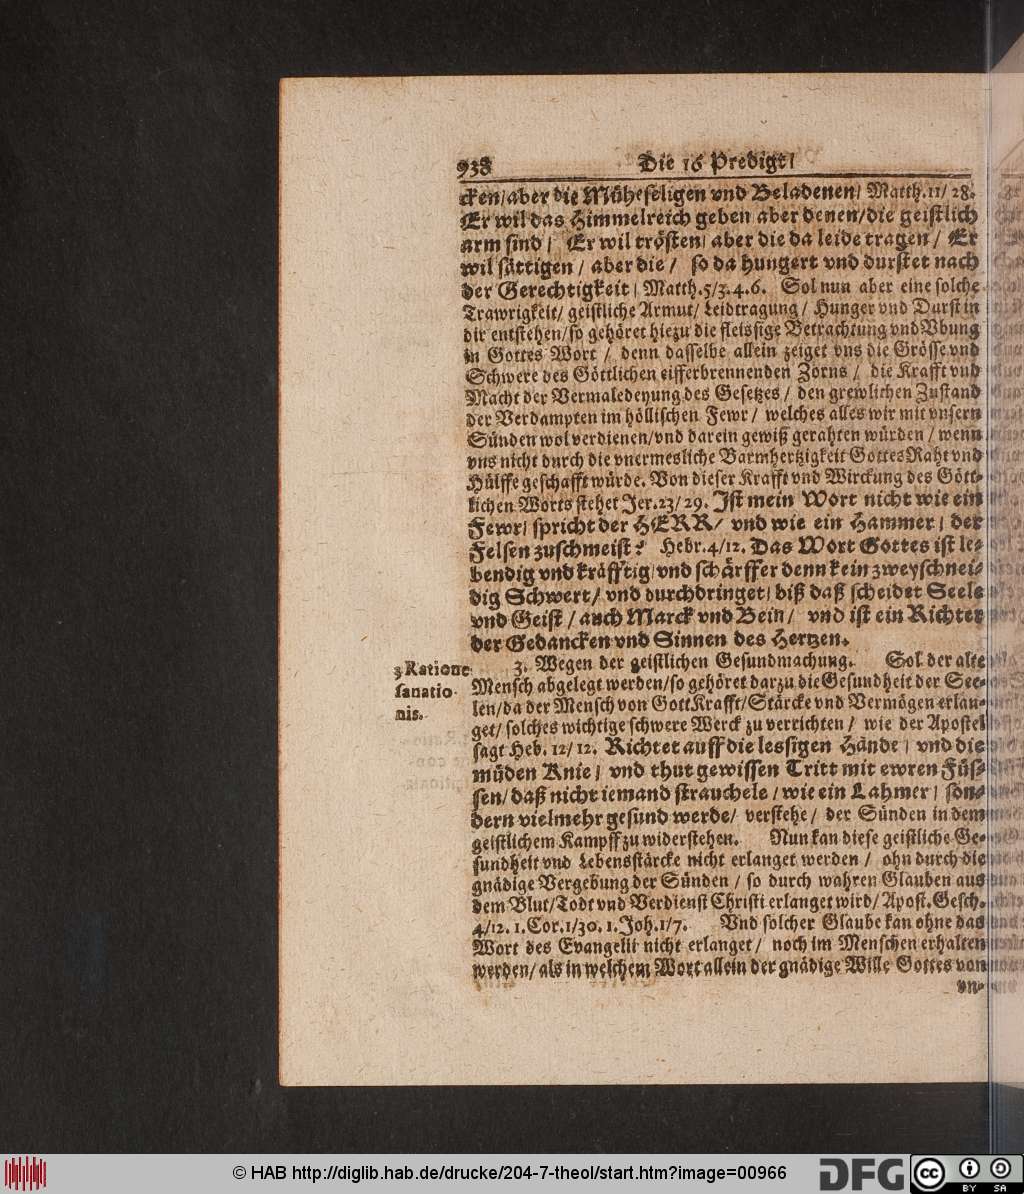 938 Die 16 Predigt/
cken/aber die Müheseligen vnd Beladenen/ Matth.11/ 28.
Er wil das Himmelreich geben aber denen/die geistlich
arm sind/ Er wil trösten/ aber die da leide tragen/ Er
wil sättigen/ aber die/ so da hungert vnd durstet nach
der Gerechtigkeit/ Matth.5/3.4.6. Sol nun aber eine solche
Trawrigkeit/ geistliche Armut/ Leidtragung/ Hunger vnd Durst in
dir entstehen/so gehöret hiezu die fleissige Betrachtung vnd Vbung
in Gottes Wort/ denn dasselbe allein zeiget vns die Grösse vnd
Schwere des Göttlichen eifferbrennenden Zorns/ die Krafft vnd
Macht der Vermaledeyung des Gesetzes/ den grewlichen Zustand
der Verdampten im höllischen Fewr/ welches alles wir mit vnsern
Sünden wol verdienen/vnd darein gewiß gerahten würden/ wenn
vns nicht durch die vnermesliche Barmhertzigkeit Gottes Raht vnd
Hülffe geschafft würde. Von dieser Krafft vnd Wirckung des Gött-
lichen Worts stehet Jer.23/ 29. Ist mein Wort nicht wie ein
Fewr/ spricht der HERR/ vnd wie ein Hammer/ der
Felsen zuschmeist? Hebr.4/12. Das Wort Gottes ist le-
bendig vnd kräfftig/vnd schärffer denn kein zweyschnei-
dig Schwert/ vnd durchdringet/ biß daß scheidet Seele
vnd Geist/ auch Marck vnd Bein/ vnd ist ein Richter
der Gedancken vnd Sinnen des Hertzen.
3 Ratione
sanatio-
nis.
3. Wegen der geistlichen Gesundmachung. Sol der alte
Mensch abgelegt werden/so gehöret darzu die Gesundheit der See-
len/da der Mensch von Gott Krafft/Stärcke vnd Vermögen erlan-
get/ solches wichtige schwere Werck zu verrichten/ wie der Apostel
sagt Heb. 12/ 12. Richtet auff die lessigen Hände/ vnd die
müden Knie/ vnd thut gewissen Tritt mit ewren Füs-
sen/ daß nicht iemand strauchele/ wie ein Lahmer/ son-
dern vielmehr gesund werde/ verstehe/ der Sünden in dem
geistlichem Kampff zu widerstehen. Nun kan diese geistliche Ge-
sundheit vnd Lebensstärcke nicht erlanget werden/ ohn durch die
gnädige Vergebung der Sünden/ so durch wahren Glauben aus
dem Blut/Todt vnd Verdienst Christi erlanget wird/ Apost.Gesch.
4/12. 1.Cor.1/30. 1.Joh.1/7. Vnd solcher Glaube kan ohne das
Wort des Evangelii nicht erlanget/ noch im Menschen erhalten
werden/ als in welchem Wort allein der gnädige Wille Gottes von
vn-
© HAB http://diglib.hab.de/drucke/204-7-theol/start.htm?image=00966
DFG
cc BY SA